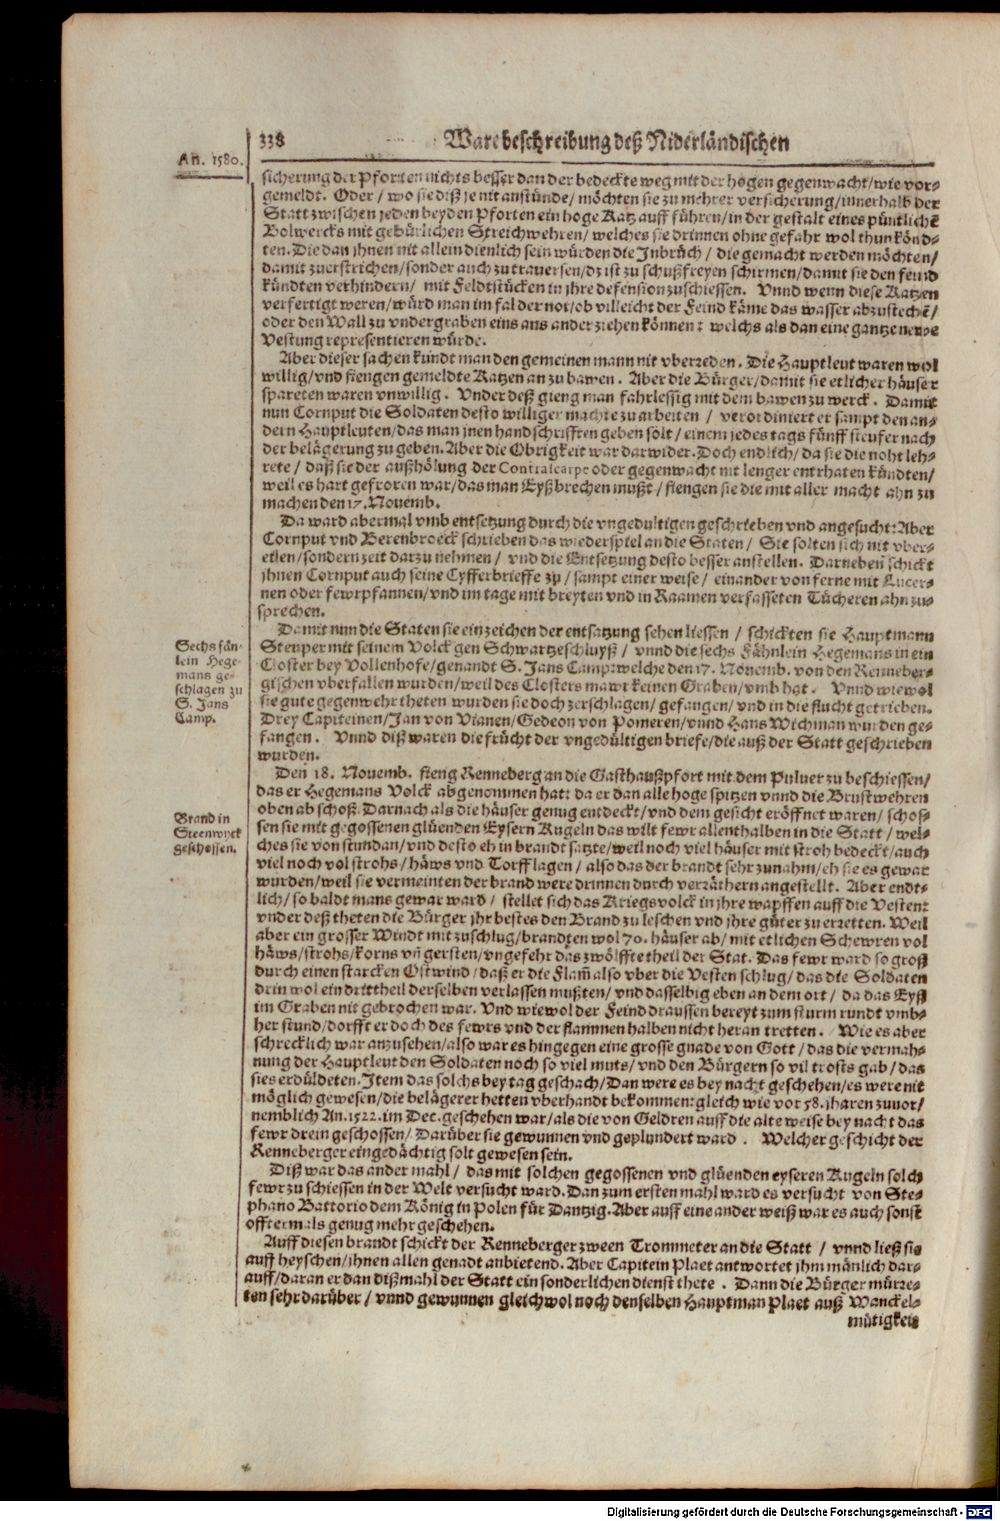 An. 1580.
338 Ware beschreibung deß Niderländischen
sicherung der Pforten nichts besser dan der bedeckte weg mit der hogen gegenwacht/wie vor-
gemeldt. Oder/ wo sie diß je nit anstünde/ möchten sie zu mehrer versicherung/innerhalb der
Statt zwischen jeden beyden Pforten ein hoge Katz auff führen/in der gestalt eines püntlichẽ
Bolwercks mit gebürlichen Streichwehren/ welches sie drinnen ohne gefahr wol thun könd-
ten. Die dan jhnen nit allein dienlich sein würden die Inbrüch/ die gemacht werden möchten/
damit zuerstrichen/sonder auch zu traversen/dz ist zu schußfreyen schirmen/damit sie den feind
kündten verhindern/ mit Feldtstücken in jhre defension zuschiessen. Vnnd wenn diese Katzen
verfertigt weren/würd man im fal der not/ob villeicht der Feind käme das wasser abzustechẽ/
oder den Wall zu vndergraben eins ans ander ziehen können: welchs als dan eine gantze newe
Vestung representieren würde.
Aber dieser sachen kundt man den gemeinen mann nit vberreden. Die Hauptleut waren wol
willig/vnd fiengen gemeldte Katzen an zu bawen. Aber die Bürger/damit sie etlicher häuser
spareten waren vnwillig. Vnder deß gieng man fahrlessig mit dem bawen zu werck. Damit
nun Cornput die Soldaten desto williger machte zu arbeiten/ verordiniert er sampt den an-
dern Hauptleuten/das man jnen handschrifften geben solt/einem jedes tags fünff steufer nach
der belägerung zu geben. Aber die Obrigkeit war darwider. Doch endlich/da sie die noht leh-
rete/ daß sie der außhölung der Contrascarpe oder gegenwacht nit lenger entrhaten kündten/
weil es hart gefroren war/das man Eyß brechen mußt/fiengen sie die mit aller macht ahn zu
machen den 17. Novemb.
Da ward abermal vmb entsetzung durch die vngedultigen geschrieben vnd angesucht: Aber
Cornput vnd Berenbroeck schrieben das wiederspiel an die Staten/ Sie solten sich nit vber-
etlen/sondern zeit darzu nehmen/ vnd die Entsetzung desto besser anstellen. Darneben schickt
jhnen Cornput auch seine Cyfferbrieffe zu/sampt einer weise/ einander von ferne mit Lucer-
nen oder fewrpfannen/vnd im tage mit breyten vnd in Raamen verfasseten Tücheren ahn zu-
sprechen.
Damit nun die Staten sie ein zeichen der entsatzung sehen liessen/ schickten sie Hauptmann
Steuper mit seinem Volck gen Schwartzeschluyß/ vnnd die sechs Fähnlein Hegemans in ein
Closter bey Vollenhofe/genandt S. Jans Camp: welche den 17. Novemb. von den Renneber-
gischen vberfallen wurden/weil des Closters mawr keinen Graben/vmb hat. Vnnd wiewol
sie gute gegenwehr theten wurden sie doch zerschlagen/gefangen/vnd in die flucht getrieben.
Drey Capiteinen/Jan von Vianen/Gedeon von Pomeren/vnnd Hans Wichman wurden ge-
fangen. Vnnd diß waren die frücht der vngedültigen briefe/die auß der Statt geschrieben
wurden.
Sechs fän-
lein Hege-
mans ge-
schlagen zu
S. Jans
Camp.
Den 18. Novemb. fieng Renneberg an die Gasthaußpfort mit dem Puluer zu beschiessen/
das er Hegemans Volck abgenommen hat: da er dan alle hoge spitzen vnnd die Brustwehren
oben ab schoß. Darnach als die häuser genug entdeckt/vnd dem gesicht eröffnet waren/ schos-
sen sie mit gegossenen glüenden Eysern Kugeln das wilt fewr allenthalben in die Statt/ wel-
ches sie von stundan/vnd desto eh in brandt satzte/weil noch viel häuser mit stroh bedeckt/auch
viel noch vol strohs/häws vnd Torff lagen/ also das der brandt sehr zunahm/eh sie es gewar
wurden/weil sie vermeinten der brand were drinnen durch verräthern angestellt. Aber endt-
lich/so baldt mans gewar ward/ stellet sich das Kriegsvolck in jhre wapffen auff die Vesten:
vnder deß theten die Bürger jhr bestes den Brand zu leschen vnd jhre güter zu erretten. Weil
aber ein grosser Windt mit zuschlug/brandten wol 70. häuser ab/mit etlichen Schewren vol
häws/strohs/korns vñ gersten/vngefehr das zwölffte theil der Stat. Das fewr ward so groß
durch einen starcken Ostwind/daß er die Flam̃ also vber die Vesten schlug/das die Soldaten
drin wol ein drittheil derselben verlassen mußten/vnd dasselbig eben an dem ort/ da das Eyß
im Graben nit gebrochen war. Vnd wiewol der Feind draussen bereyt zum sturm rundt vmb-
her stund/dorfft er doch des fewrs vnd der flammen halben nicht heran tretten. Wie es aber
schrecklich war anzusehen/also war es hingegen eine grosse gnade von Gott/das die vermah-
nung der Hauptleut den Soldaten noch so viel muts/vnd den Bürgern so vil trosts gab/das
sies erdüldeten. Item das solchs bey tag geschach/Dan were es bey nacht geschehen/es were nit
möglich gewesen/die belägerer hetten vberhandt bekommen: gleich wie vor 58. jharen zuvor/
nemblich An. 1522. im Dec. geschehen war/als die von Geldren auff die alte weise bey nacht das
fewr drein geschossen/Darüber sie gewunnen vnd geplundert ward. Welcher geschicht der
Renneberger eingedächtig solt gewesen sein.
Brand in
Steenwyck
geschossen.
Diß war das ander mahl/ das mit solchen gegossenen vnd glüenden eyseren Kugeln solch
fewr zu schiessen in der Welt versucht ward. Dan zum ersten mahl ward es versucht von Ste-
phano Battorio dem König in Polen für Dantzig. Aber auff eine ander weiß war es auch sonst
offtermals genug mehr geschehen.
Auff diesen brandt schickt der Renneberger zween Trommeter an die Statt/ vnnd ließ sie
auff heyschen/jhnen allen genadt anbietend. Aber Capitein Plaet antwortet jhm mänlich dar-
auff/daran er dan dißmahl der Statt ein sonderlichen dienst thete. Dann die Bürger mürre-
ten sehr darüber/ vnnd gewunnen gleichwol noch denselben Hauptman Plaet auß Wanckel-
mütigkeit
Digitalisierung gefördert durch die Deutsche Forschungsgemeinschaft - DFG